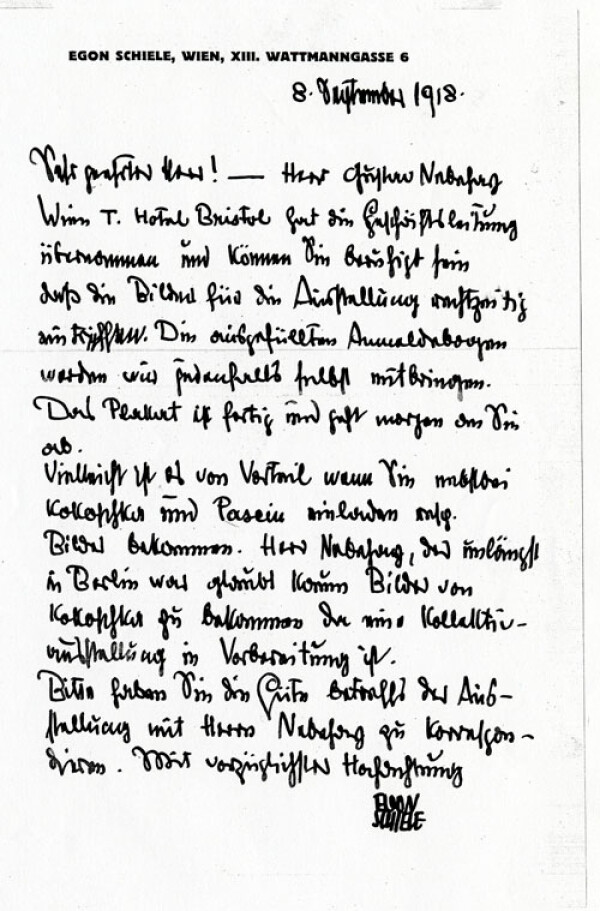 EGON SCHIELE, WIEN, XIII. WATTMANNGASSE 6
8. September 1918.
Sehr geehrter Herr! — Herr Gustav Nebehay
Wien I. Hotel Bristol hat die Geschäftsleitung
übernommen und können Sie beruhigt sein
daß die Bilder für die Ausstellung rechtzeitig
eintreffen. Die ausgefüllten Anmeldebogen
werden wir jedenfalls selbst mitbringen.
Das Plakat ist fertig und geht morgen an Sie
ab.
Vielleicht ist es von Vorteil wenn Sie
Kokoschka und einladen resp.
Bilder bekommen. Herr Nebehay, der unlängst
in Berlin war glaubt kaum Bilder von
Kokoschka zu bekommen da eine Kollektiv-
ausstellung in Vorbereitung ist.
Bitte haben Sie die Güte betreffs der Aus-
stellung mit Herrn Nebehay zu korrespon-
dieren. Mit vorzüglichster Hochachtung
EGON
SCHIELE